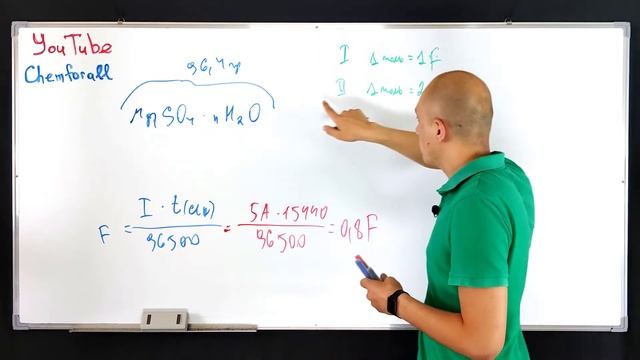 YouTube
Chemforall
96,4 гр
MnSO₄ · nH₂O
I 1 моль = 1F
II 1 моль = 2
F = I · t(сек) / 96500 = 5A · 15440 / 96500 = 0,8F